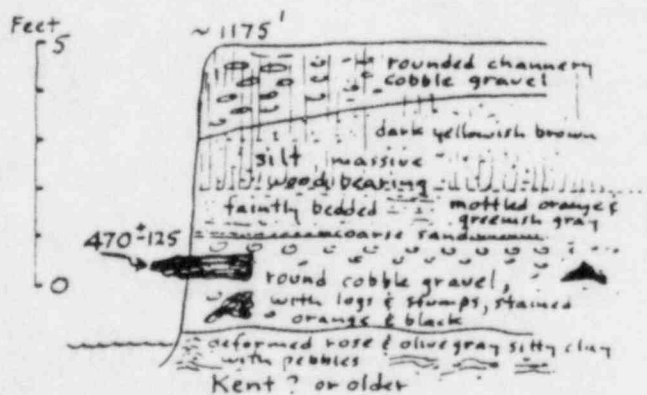 Feet
~1175'
5
rounded channery
cobble gravel
dark yellowish brown
silt massive
wood bearing
faintly bedded
mottled orange &
greenish gray
coarse sand
470±125
0
round cobble gravel,
with logs & stumps, stained
orange & black
deformed rose & olive gray silty clay
with pebbles
Kent ? or older